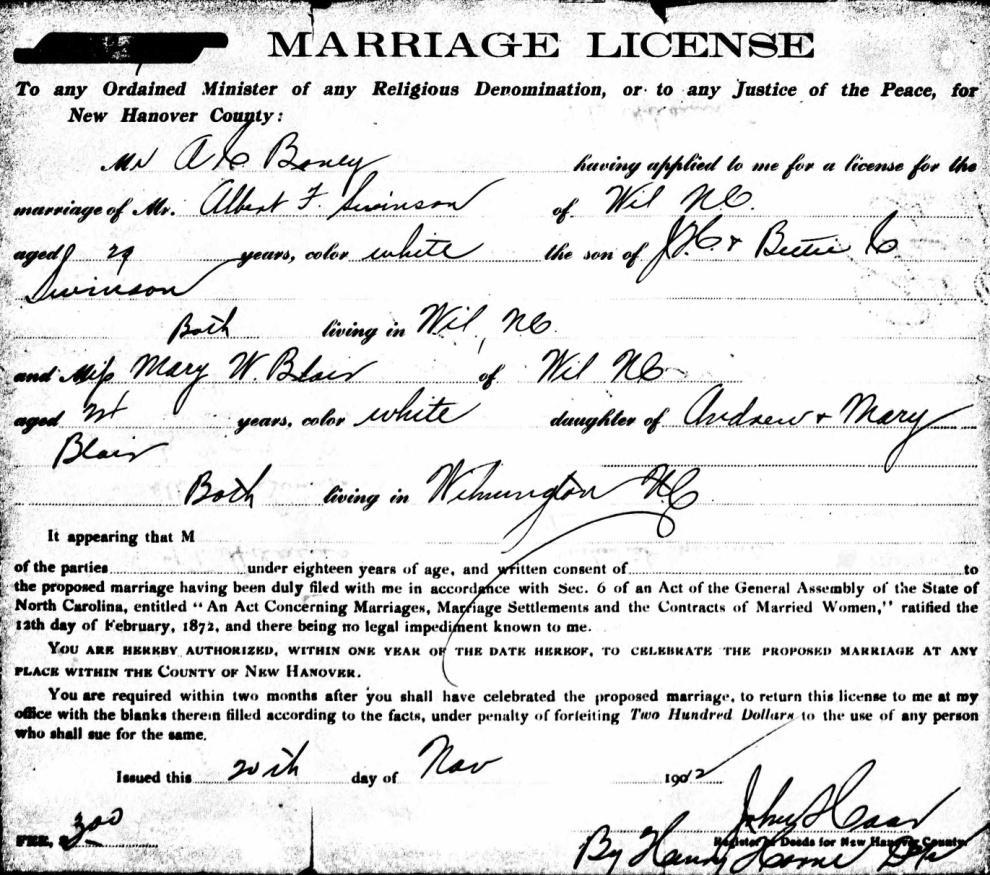 MARRIAGE LICENSE
To any Ordained Minister of any Religious Denomination, or to any Justice of the Peace, for
New Hanover County:
Mr A C Boney having applied to me for a license for the
marriage of Mr. Albert F. Swinson of Wil NC.
aged 29 years, color white the son of J. C & Bettie C
Swinson
Both living in Wil, NC
and Miss Mary W. Blair of Wil NC
aged years, color white daughter of Andrew & Mary
Blair
Both living in Wilmington NC
It appearing that M
of the parties under eighteen years of age, and written consent of to
the proposed marriage having been duly filed with me in accordance with Sec. 6 of an Act of the General Assembly of the State of
North Carolina, entitled "An Act Concerning Marriages, Marriage Settlements and the Contracts of Married Women," ratified the
12th day of February, 1872, and there being no legal impediment known to me.
YOU ARE HEREBY AUTHORIZED, WITHIN ONE YEAR OF THE DATE HEREOF, TO CELEBRATE THE PROPOSED MARRIAGE AT ANY
PLACE WITHIN THE COUNTY OF NEW HANOVER.
You are required within two months after you shall have celebrated the proposed marriage, to return this license to me at my
office with the blanks therein filled according to the facts, under penalty of forfeiting Two Hundred Dollars to the use of any person
who shall sue for the same.
Issued this 20th day of Nov 1902
John Haar
FEE, $ 300 Register of Deeds for New Hanover County.
By Dep